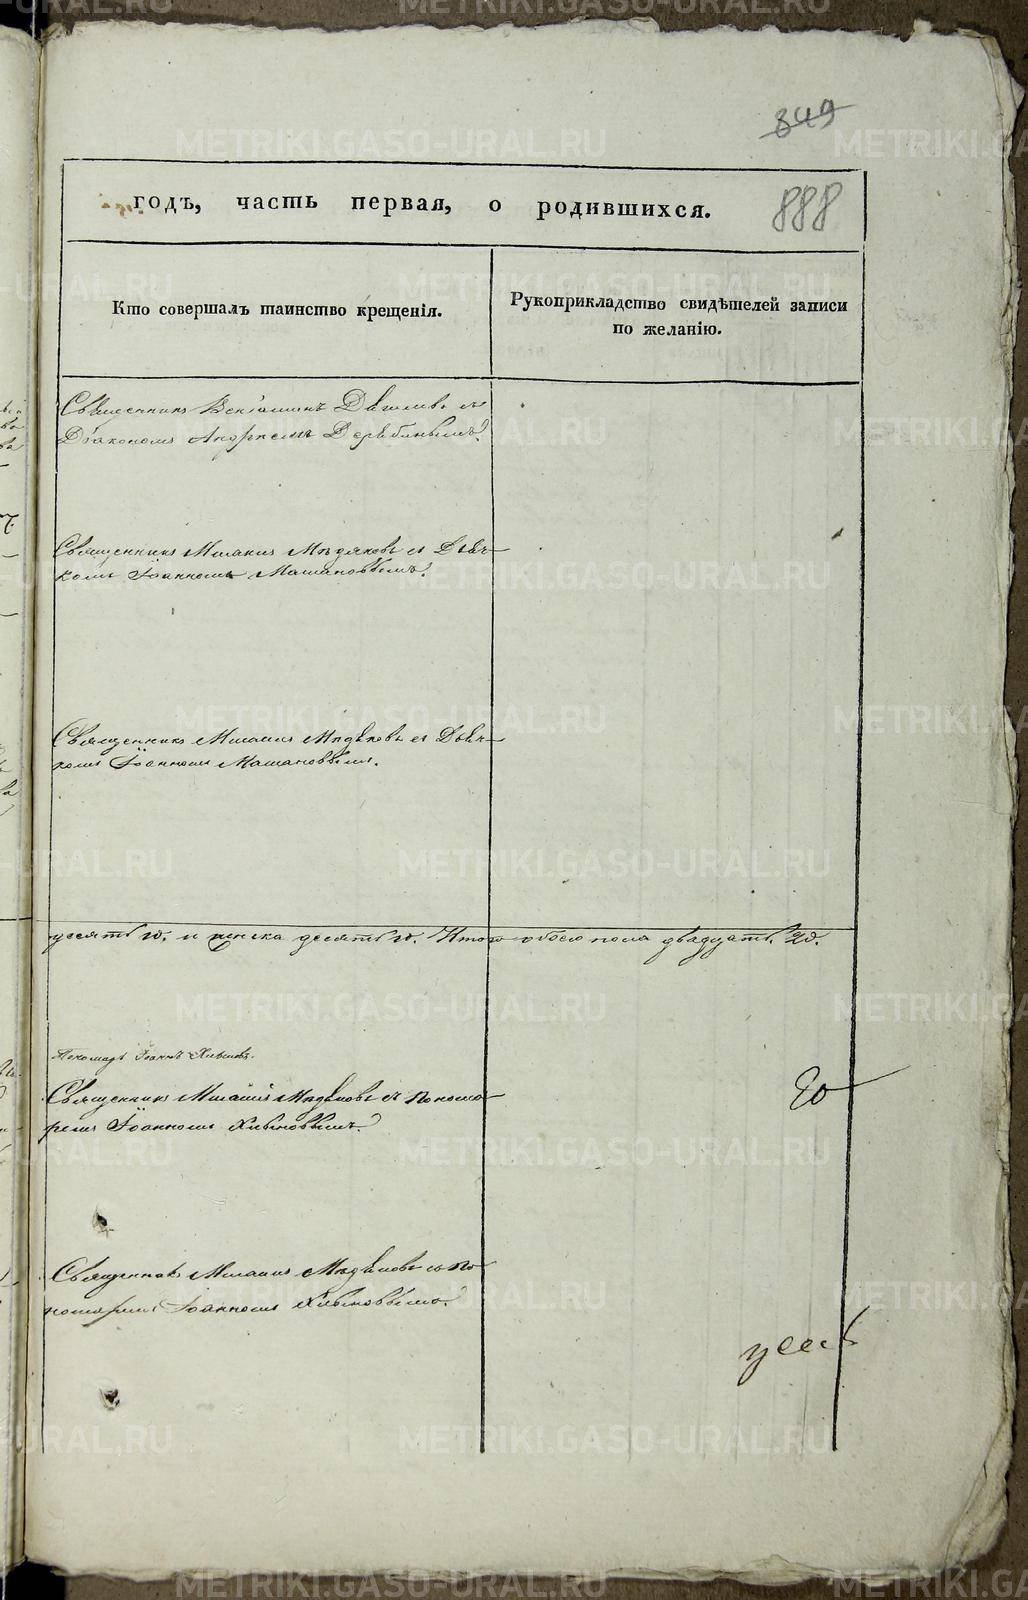 349
годъ, часть первая, о родившихся. 888
Кто совершалъ таинство крещенія.
Рукоприкладство свидѣтелей записи
по желанію.
Священникъ Веніаминъ съ
Діакономъ Андреемъ Дерябинымъ.
Священникъ Михаилъ съ Дьяч-
комъ Іоанномъ Машановымъ.
Священникъ Михаилъ съ Дьяч-
комъ Іоанномъ Машановымъ.
десять 10. и женска десять 10. Итого обоего пола двадцать. 20.
Пономарь Іоаннъ Хлыновъ.
Священникъ Михаилъ съ Понома-
ремъ Іоанномъ Хлыновымъ.
20
Священникъ Михаилъ съ По-
номаремъ Іоанномъ Хлыновымъ.
METRIKI.GASO-URAL.RU